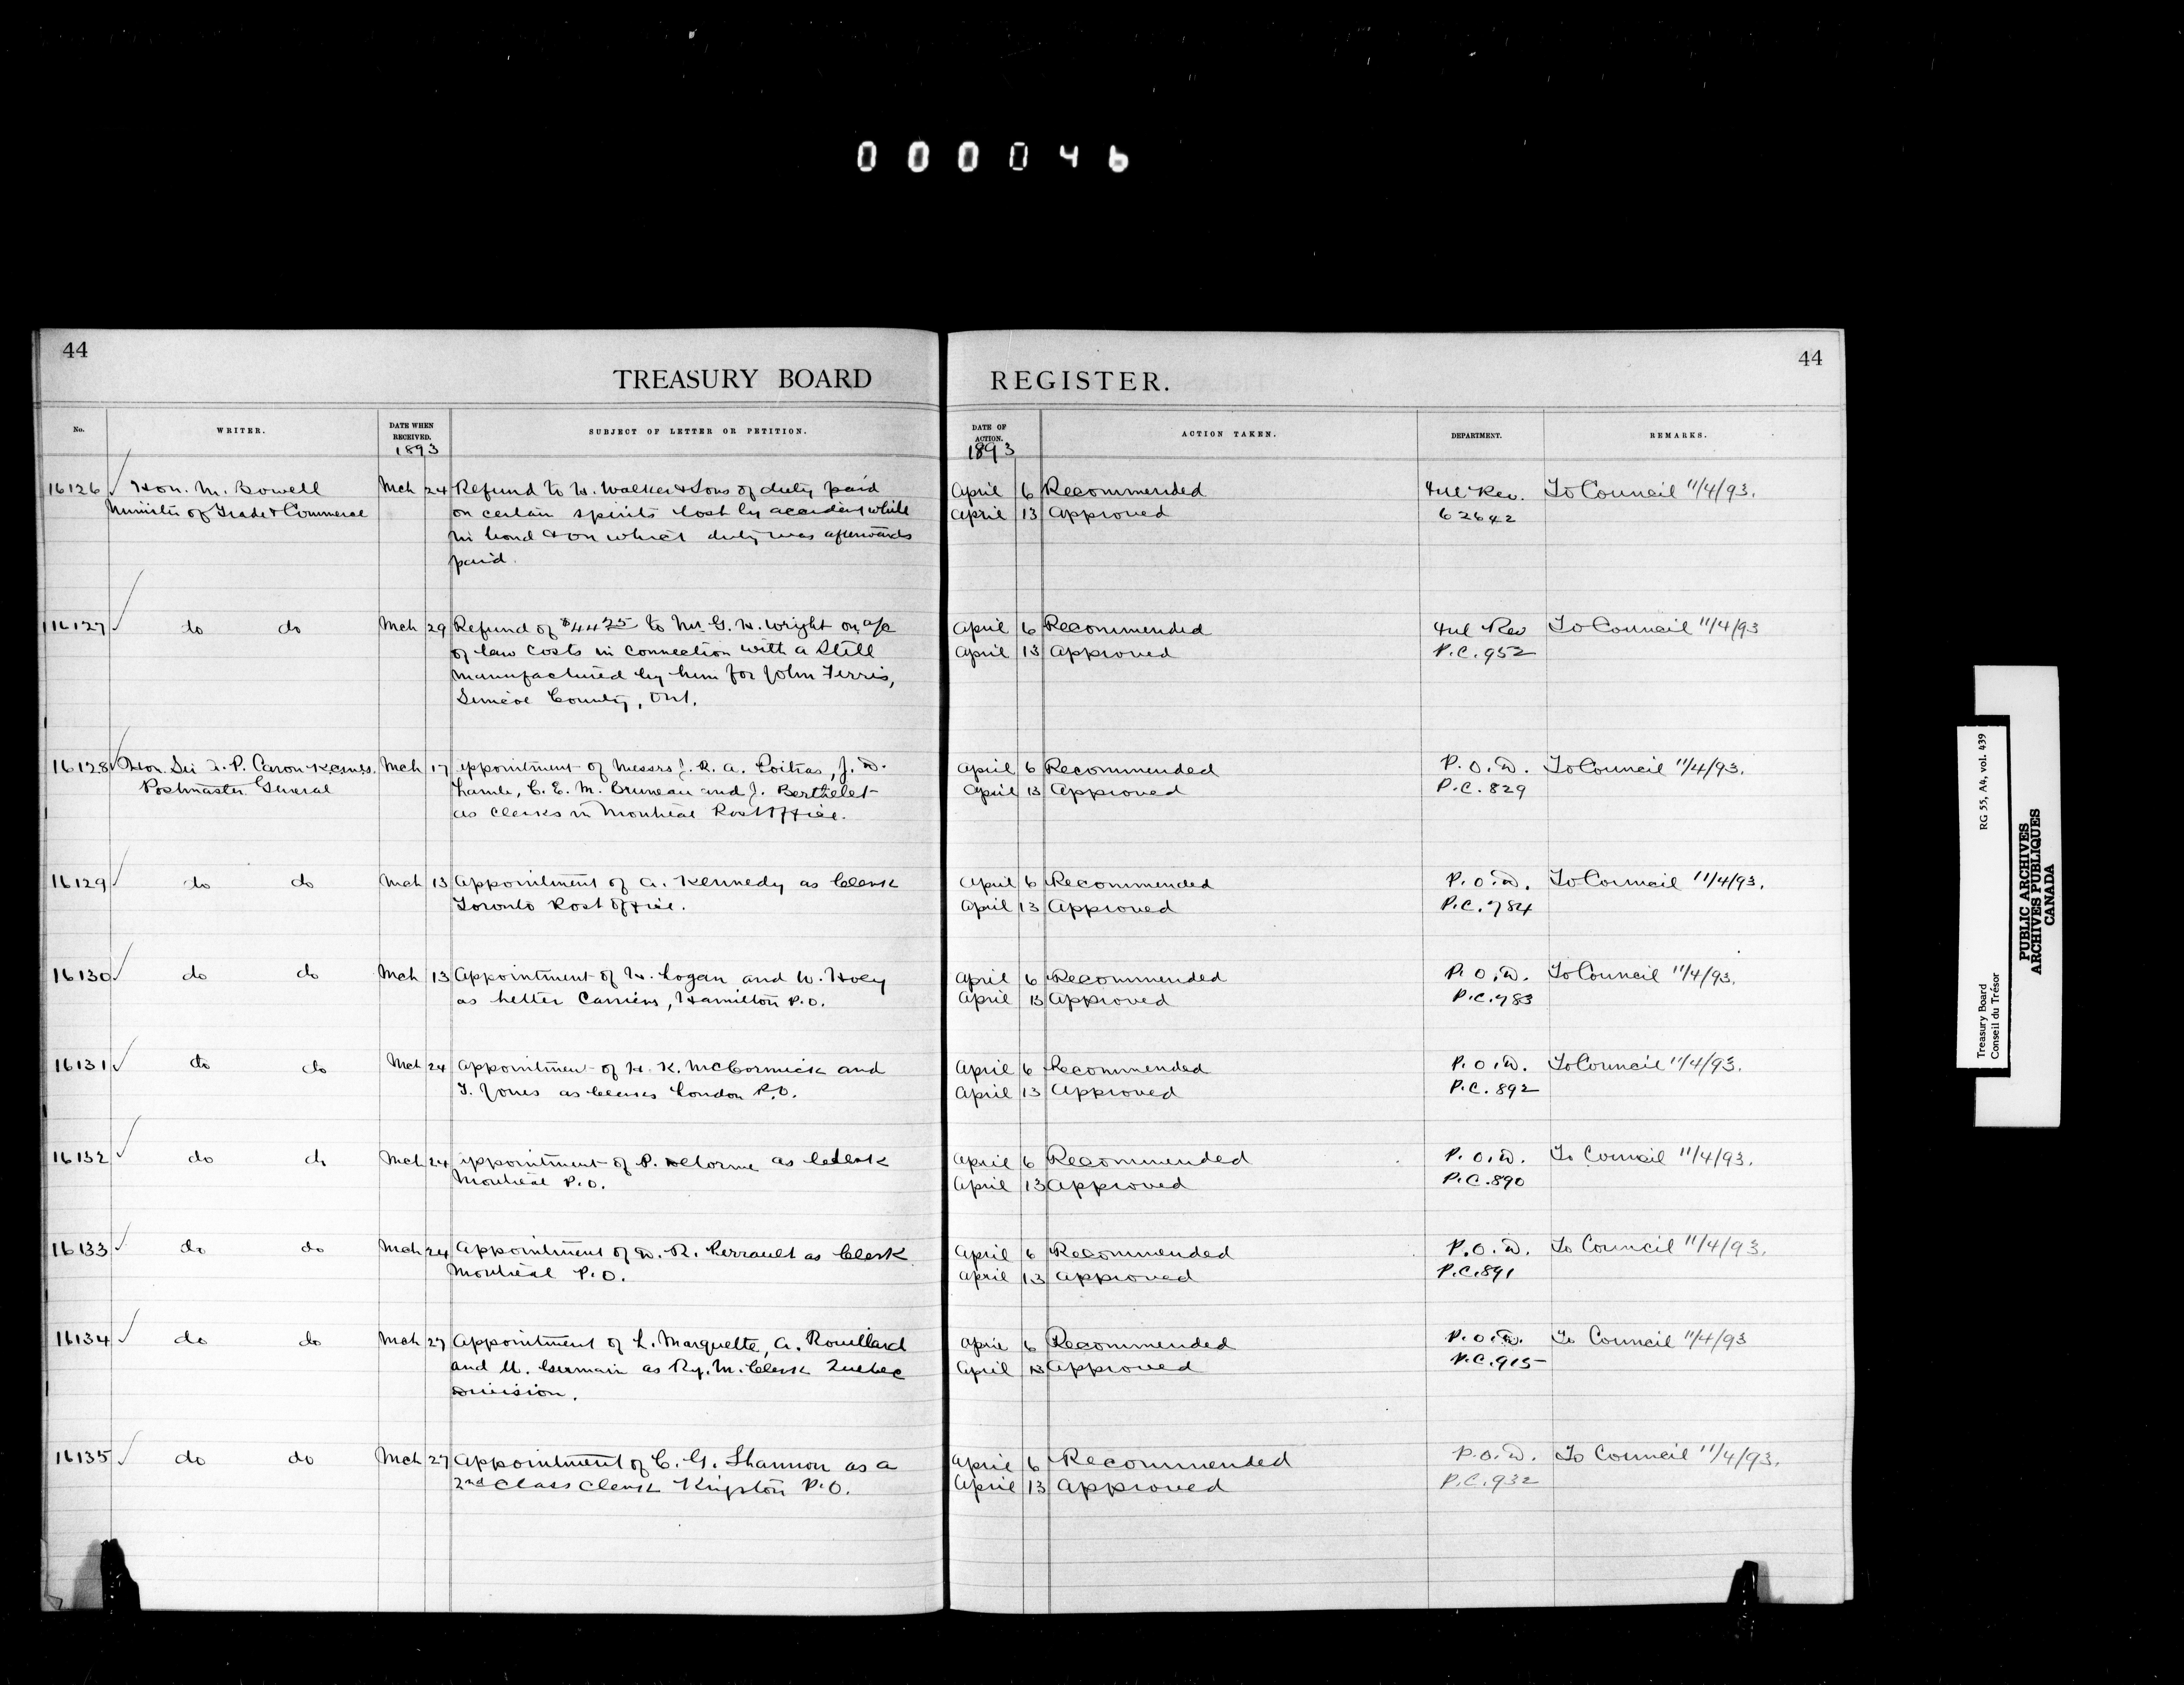 000046
44
TREASURY BOARD
REGISTER.
44
No.
WRITER.
DATE WHEN RECEIVED.
1893
SUBJECT OF LETTER OR PETITION.
DATE OF ACTION.
1893
ACTION TAKEN.
DEPARTMENT.
REMARKS.
16126 ✓ Hon. M. Bowell Mch 24 Refund to H. Walker & Sons of duty paid April 6 Recommended Inl Rev. To Council 11/4/93.
Minister of Trade & Commerce on certain spirits lost by accident while April 13 Approved 62642
in bond & on which duty was afterwards
paid.
16127 ✓ do do Mch 29 Refund of $44 25 to Mr. G. H. Wright on a/c April 6 Recommended Inl Rev To Council 11/4/93
of law costs in connection with a Still April 13 Approved P.C. 952
manufactured by him for John Ferris,
Simcoe County, Ont.
16128 ✓ Hon. Sir A. P. Caron K.C.M.G. Mch 17 appointment of Messrs J. R. A. Poitras, J. D. April 6 Recommended P.O.D. To Council 11/4/93.
Postmaster General C. E. M. Bruneau and J. Berthelet April 13 Approved P.C. 829
as clerks in Montreal Post Office.
16129 ✓ do do Mch 13 Appointment of A. Kennedy as Clerk April 6 Recommended P.O.D. To Council 11/4/93.
Toronto Post Office. April 13 Approved P.C. 784
16130 ✓ do do Mch 13 Appointment of H. Logan and W. Hoey April 6 Recommended P.O.D. To Council 11/4/93.
as Letter Carriers, Hamilton P.O. April 13 Approved P.C. 783
16131 ✓ do do Mch 24 Appointment of H. K. McCormick and April 6 Recommended P.O.D. To Council 11/4/93.
T. Jones as Clerks London P.O. April 13 Approved P.C. 892
16132 ✓ do do Mch 24 appointment of P. Delorme as Clerk April 6 Recommended P.O.D. To Council 11/4/93.
Montreal P.O. April 13 Approved P.C. 890
16133 ✓ do do Mch 24 Appointment of D. R. Perrault as Clerk April 6 Recommended P.O.D. To Council 11/4/93.
Montreal P.O. April 13 Approved P.C. 891
16134 ✓ do do Mch 27 Appointment of L. Marquette, A. Rouillard April 6 Recommended P.O.D. To Council 11/4/93
and U. Germain as Ry. M. Clerk Quebec April 13 Approved P.C. 915
Division.
16135 ✓ do do Mch 27 Appointment of C. G. Shannon as a April 6 Recommended P.O.D. To Council 11/4/93.
2nd Class Clerk Kingston P.O. April 13 Approved P.C. 932
Treasury Board RG 55, A4, vol. 439
Conseil du Trésor
PUBLIC ARCHIVES
ARCHIVES PUBLIQUES
CANADA